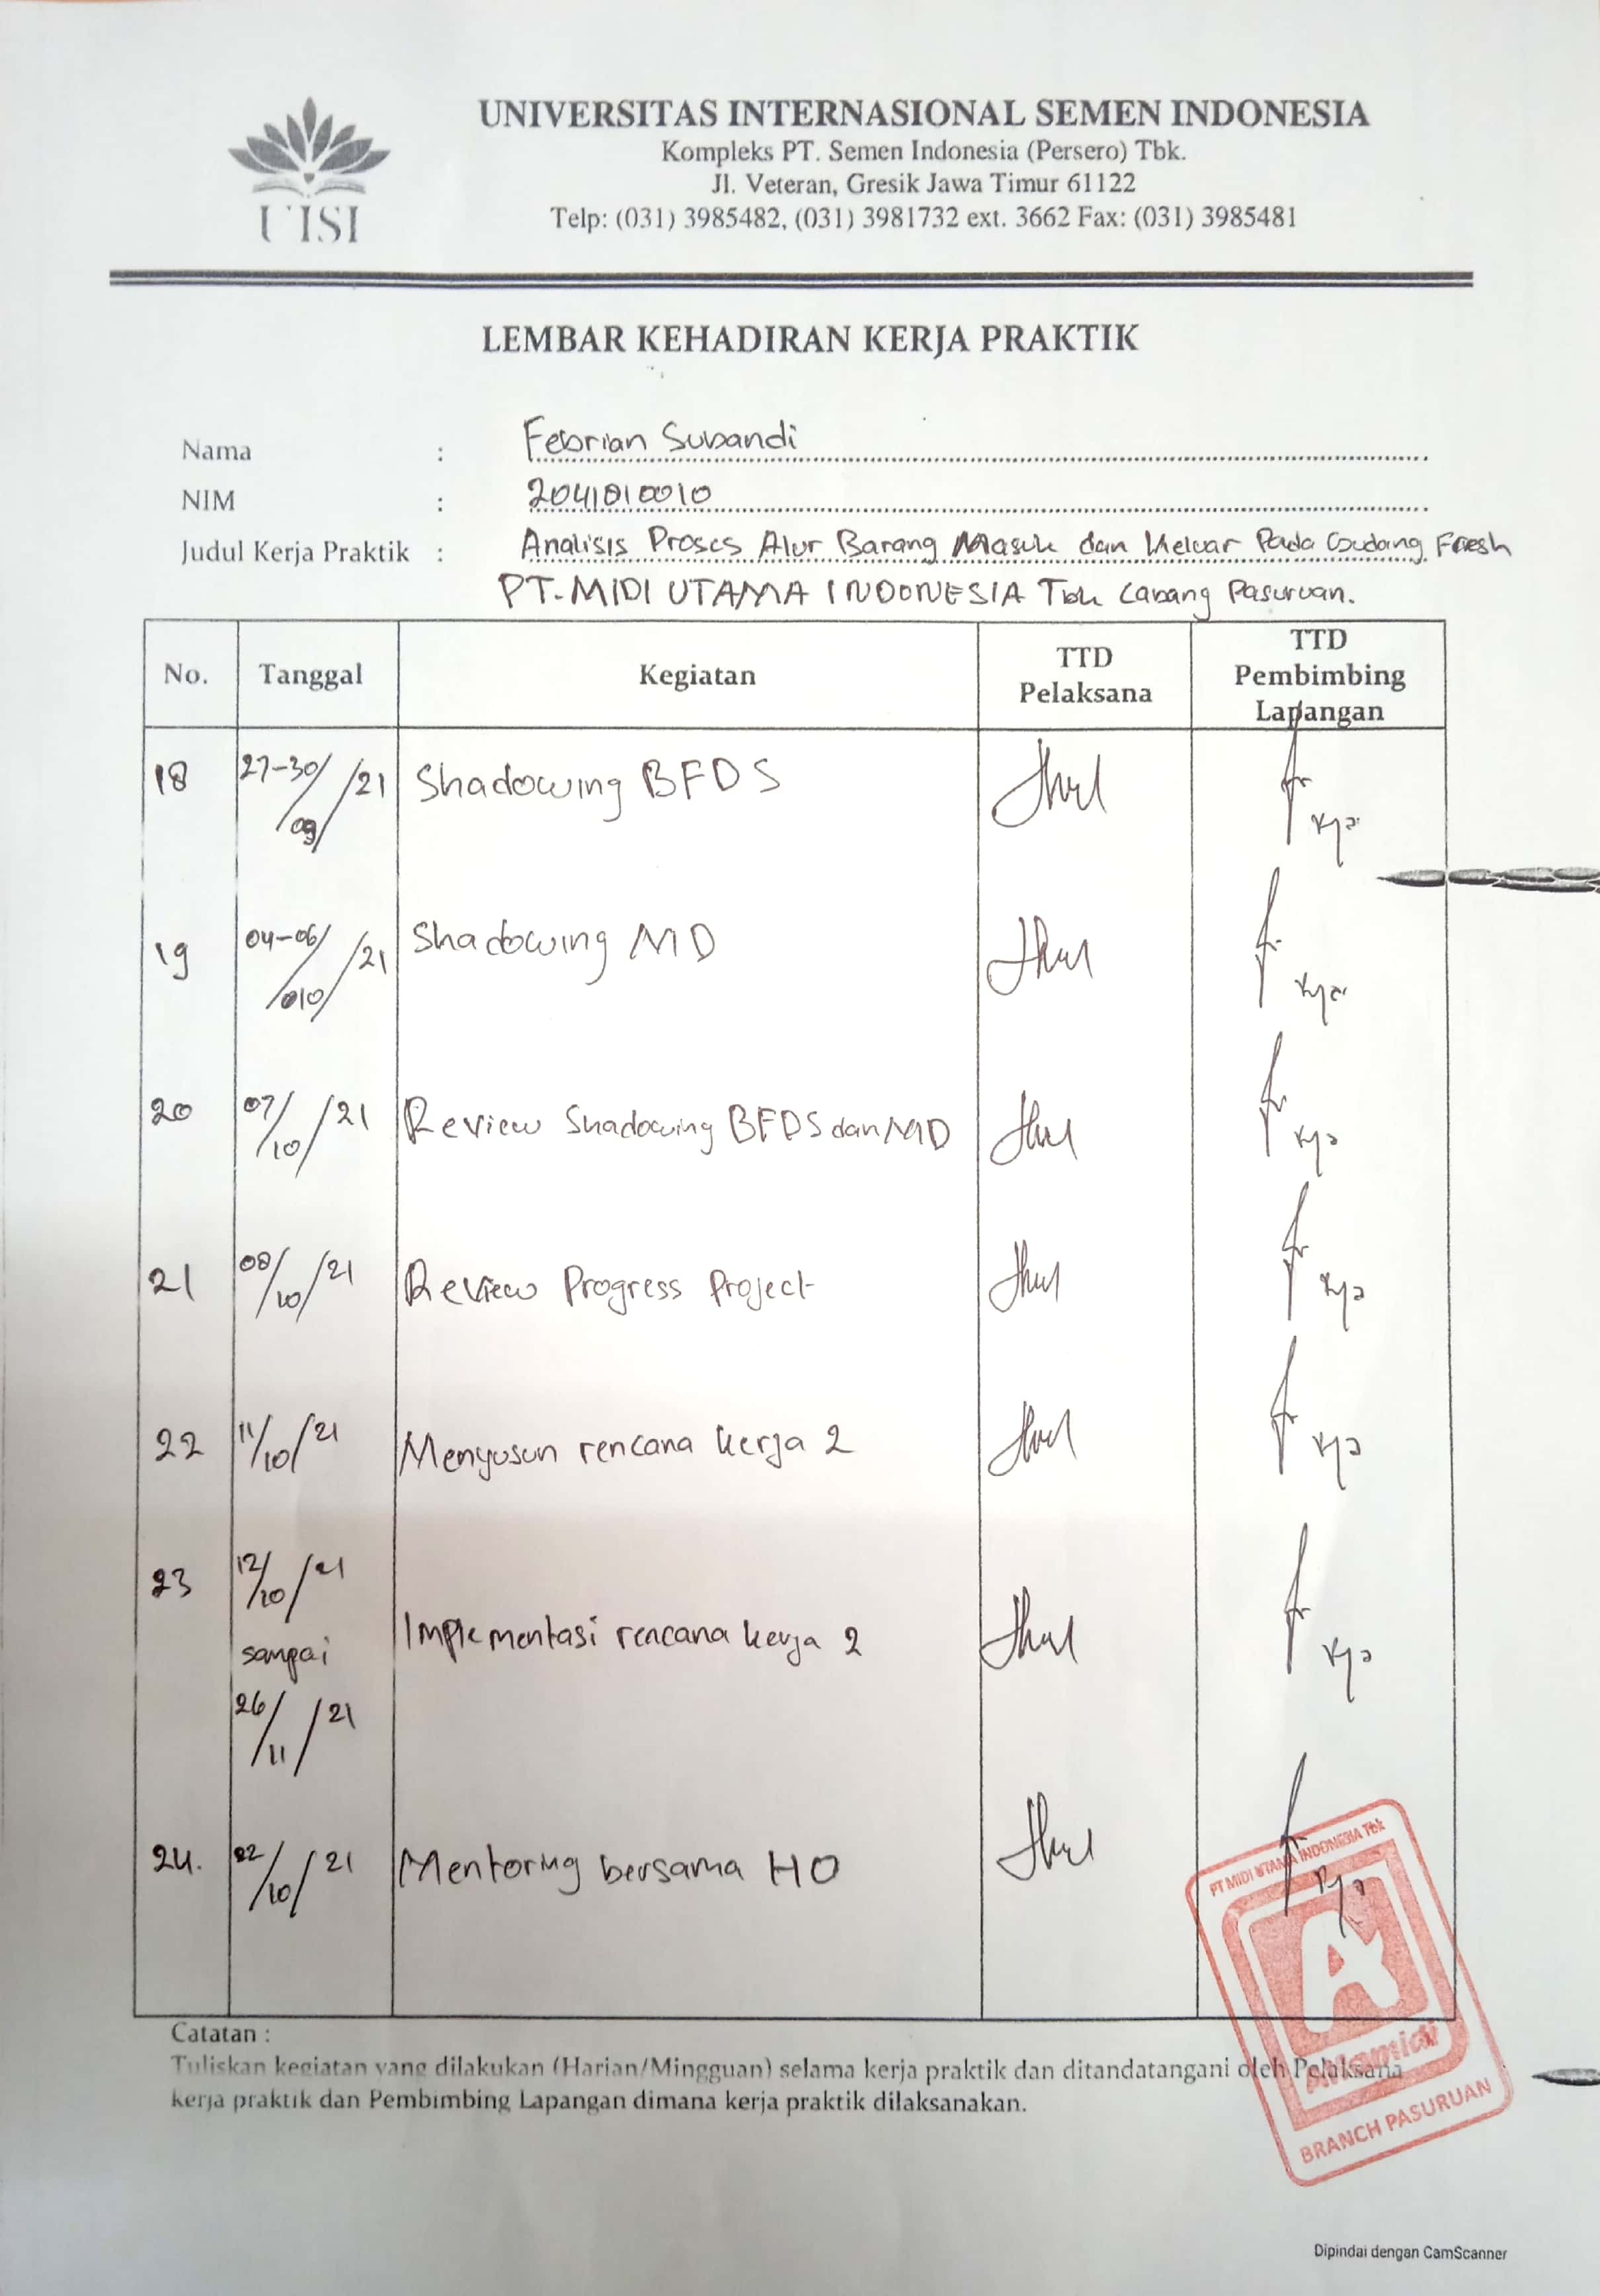 UNIVERSITAS INTERNASIONAL SEMEN INDONESIA
Kompleks PT. Semen Indonesia (Persero) Tbk.
Jl. Veteran, Gresik Jawa Timur 61122
Telp: (031) 3985482, (031) 3981732 ext. 3662 Fax: (031) 3985481
UISI
LEMBAR KEHADIRAN KERJA PRAKTIK
Nama : Febrian Subandi
NIM : 2041010010
Judul Kerja Praktik : Analisis Proses Alur Barang Masuk dan Keluar Pada Gudang Fresh
PT. MIDI UTAMA INDONESIA Tbk Cabang Pasuruan.
No. Tanggal Kegiatan TTD Pelaksana TTD Pembimbing Lapangan
18 27-30/09/21 Shadowing BFDS
19 04-06/010/21 Shadowing MD
20 07/10/21 Review Shadowing BFDS dan MD
21 08/10/21 Review Progress Project
22 11/10/21 Menyusun rencana kerja 2
23 12/10/21 sampai 26/11/21 Implementasi rencana kerja 2
24. 22/10/21 Mentoring bersama HO
PT MIDI UTAMA INDONESIA Tbk
A
Alfamidi
BRANCH PASURUAN
Catatan :
Tuliskan kegiatan yang dilakukan (Harian/Mingguan) selama kerja praktik dan ditandatangani oleh Pelaksana
kerja praktik dan Pembimbing Lapangan dimana kerja praktik dilaksanakan.
Dipindai dengan CamScanner